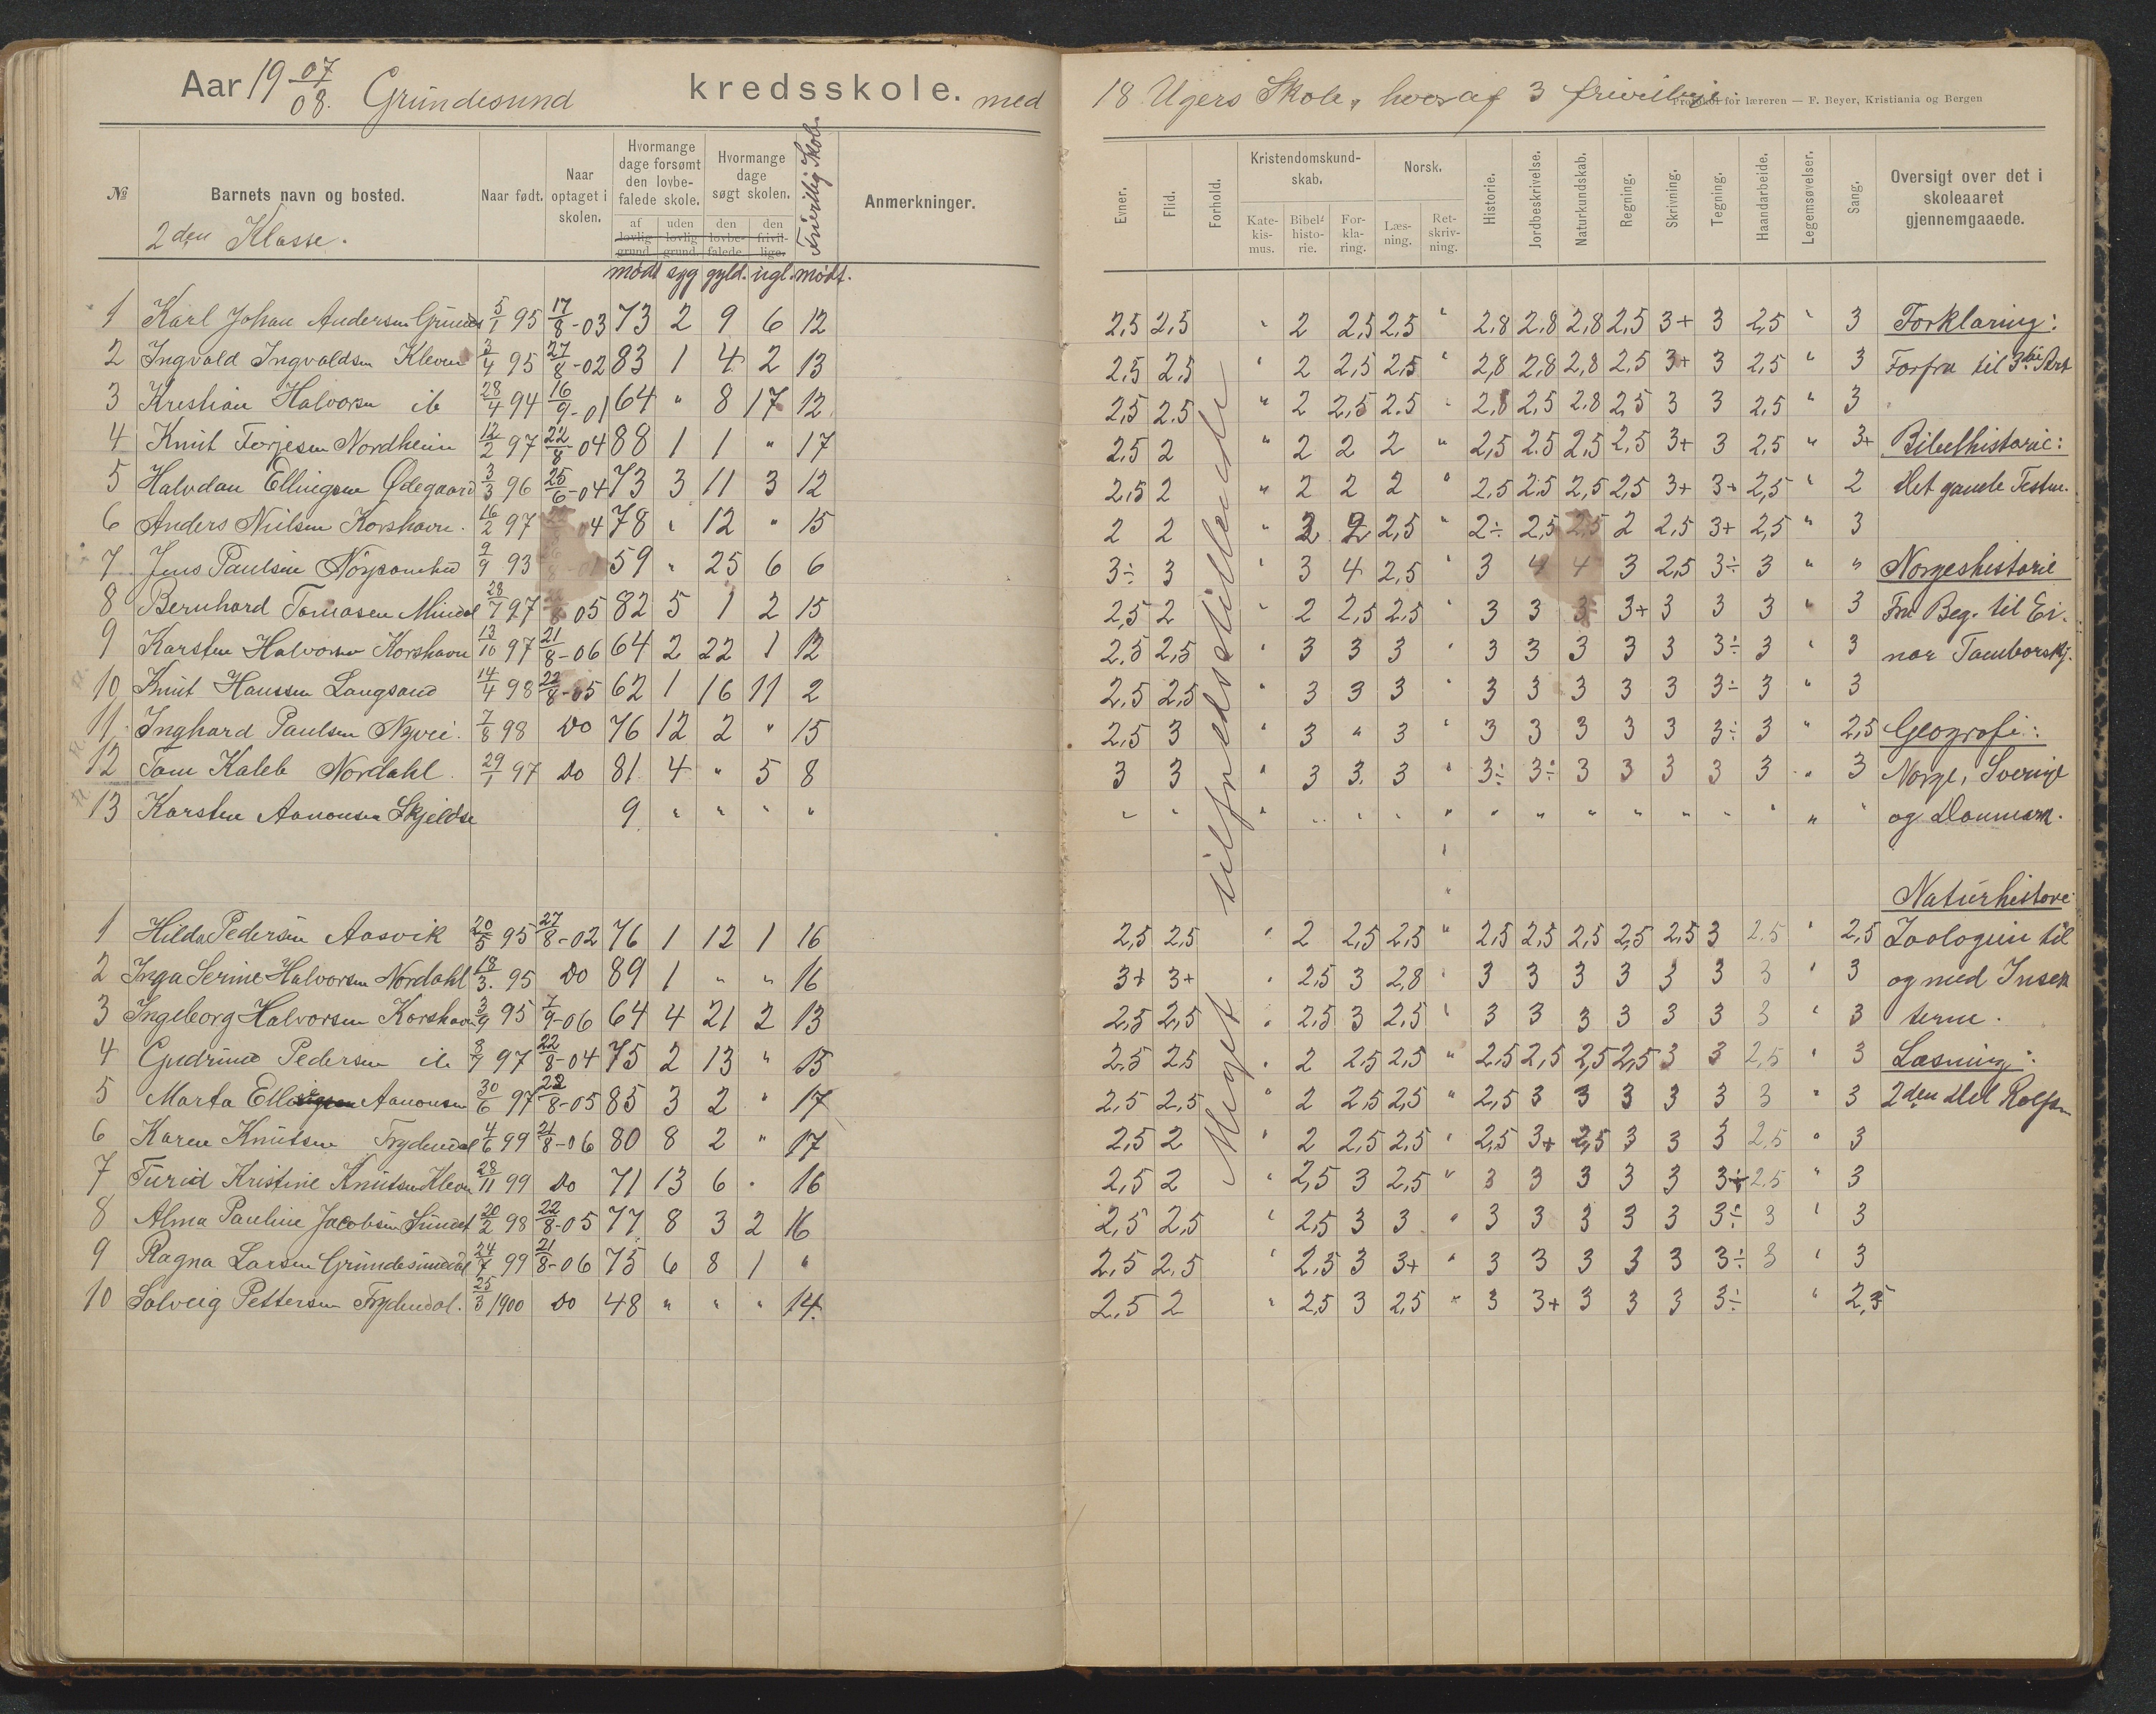 Aar 19 07/08. Grundesund kredsskole. med 18 Ugers Skole, hvoraf 3 frivillige.
Protokol for læreren — F. Beyer, Kristiania og Bergen
№ Barnets navn og bosted. Naar født. Naar optaget i skolen. Hvormange dage forsømt den lovbefalede skole. Hvormange dage søgt skolen. Frivillig Skole Anmerkninger.
af lovlig grund. uden lovlig grund. den lovbefalede den frivillige.
2den Klasse.
mødt syg gyld. ugl. mødt.
Evner. Flid. Forhold. Kristendomskundskab. Norsk. Historie. Jordbeskrivelse. Naturkundskab. Regning. Skrivning. Tegning. Haandarbeide. Legemsøvelser. Sang. Oversigt over det i skoleaaret gjennemgaaede.
Katekismus. Bibelhistorie. Forklaring. Læsning. Retskrivning.
1 Karl Johan Andersen Grundes 5/1 95 17/8-03 73 2 9 6 12 2,5 2,5 " 2 2,5 2,5 " 2,8 2,8 2,8 2,5 3+ 3 2,5 " 3 Forklaring:
2 Ingvald Ingvaldsen Kleven 3/4 95 27/8-02 83 1 4 2 13 2,5 2,5 " 2 2,5 2,5 " 2,8 2,8 2,8 2,5 3+ 3 2,5 " 3 Forfra til 3die Part
3 Kristian Halvorsen ib 28/4 94 16/9-01 64 " 8 17 12 2,5 2,5 " 2 2,5 2,5 " 2,8 2,5 2,8 2,5 3 3 2,5 " 3
4 Knut Terjesen Nordheim 12/2 97 22/8 04 88 1 1 " 17 2,5 2 " 2 2 2 " 2,5 2,5 2,5 2,5 3+ 3 2,5 " 3+ Bibelhistorie:
5 Halvdan Ellingsen Ødegaard 3/3 96 25/6-04 73 3 11 3 12 2,5 2 " 2 2 2 " 2,5 2,5 2,5 2,5 3+ 3+ 2,5 " 2 Det gamle Testm.
6 Anders Nielsen Korshavn. 16/2 97 04 78 " 12 " 15 2 2 " 2 2 2,5 " 2÷ 2,5 2,5 2 2,5 3+ 2,5 " 3
7 Jens Paulsen 9/9 93 59 " 25 6 6 3÷ 3 " 3 4 2,5 " 3 4 4 3 2,5 3÷ 3 " " Norgeshistorie
8 Bernhard Tomasen Mindal 28/7 97 05 82 5 1 2 15 2,5 2 " 2 2,5 2,5 " 3 3 3 3+ 3 3 3 " 3 Fra Beg. til Ei-
9 Karsten Halvorsen Korshavn 13/10 97 21/8-06 64 2 22 1 12 2,5 2,5 " 3 3 3 " 3 3 3 3 3 3÷ 3 " 3 nar Tamborskj.
10 Knut Hanssen Langsand 14/4 98 22/8-05 62 1 16 11 2 2,5 2,5 " 3 3 3 " 3 3 3 3 3 3÷ 3 " 3
11. Inghard Paulsen Nyvei. 7/8 98 Do 76 12 2 " 15 2,5 3 " 3 " 3 " 3 3 3 3 3 3÷ 3 " 2,5 Geografi:
12 Tom Kaleb Nordahl. 29/1 97 Do 81 4 " 5 8 3 3 " 3 3 3 " 3÷ 3÷ 3 3 3 3 3 " 3 Norge, Sverige
13 Karsten Aanonsen Skjeldsø 9 " " " " " " " " " " " " " " " " " " " " og Danmark.
Meget tilfredsstillende
Naturhistorie
1 Hilda Pedersen Aasvik 20/5 95 27/8-02 76 1 12 1 16 2,5 2,5 " 2 2,5 2,5 " 2,5 2,5 2,5 2,5 2,5 3 2,5 " 2,5 Zoologien til
2 Inga Serine Halvorsen Nordahl 18/3. 95 Do 89 1 " " 16 3+ 3+ " 2,5 3 2,8 " 3 3 3 3 3 3 3 " 3 og med Insek
3 Ingeborg Halvorsen Korshavn 3/9 95 7/9-06 64 4 21 2 13 2,5 2,5 " 2,5 3 2,5 " 3 3 3 3 3 3 3 " 3 terne.
4 Gudrun Pedersen ib 8/9 97 22/8-04 75 2 13 " 15 2,5 2,5 " 2 2,5 2,5 " 2,5 2,5 2,5 2,5 3 3 2,5 " 3 Læsning:
5 Marta Aanonsen 30/6 97 22/8-05 85 3 2 " 17 2,5 2,5 " 2 2,5 2,5 " 2,5 3 3 3 3 3 3 " 3 2den Del Rolfsen
6 Karen Knutsen Frydendal 4/6 99 21/8-06 80 8 2 " 17 2,5 2 " 2 2,5 2,5 " 2,5 3+ 2,5 3 3 3 2,5 " 3
7 Turid Kristine Knutsen Kleven 28/11 99 Do 71 13 6 " 16 2,5 2 " 2,5 3 2,5 " 3 3 3 3 3 3÷ 2,5 " 3
8 Alma Pauline Jacobsen Sundet 20/2 98 22/8-05 77 8 3 2 16 2,5 2,5 " 2,5 3 3 " 3 3 3 3 3 3÷ 3 " 3
9 Ragna Larsen Grundesundal 24/7 99 21/8-06 75 6 8 1 " 2,5 2,5 " 2,5 3 3+ " 3 3 3 3 3 3÷ 3 " 3
10 Solveig Pettersen Frydendal. 25/3 1900 Do 48 " " " 14. 2,5 2 " 2,5 3 2,5 " 3 3+ 3 3 3 3÷ " 2,5